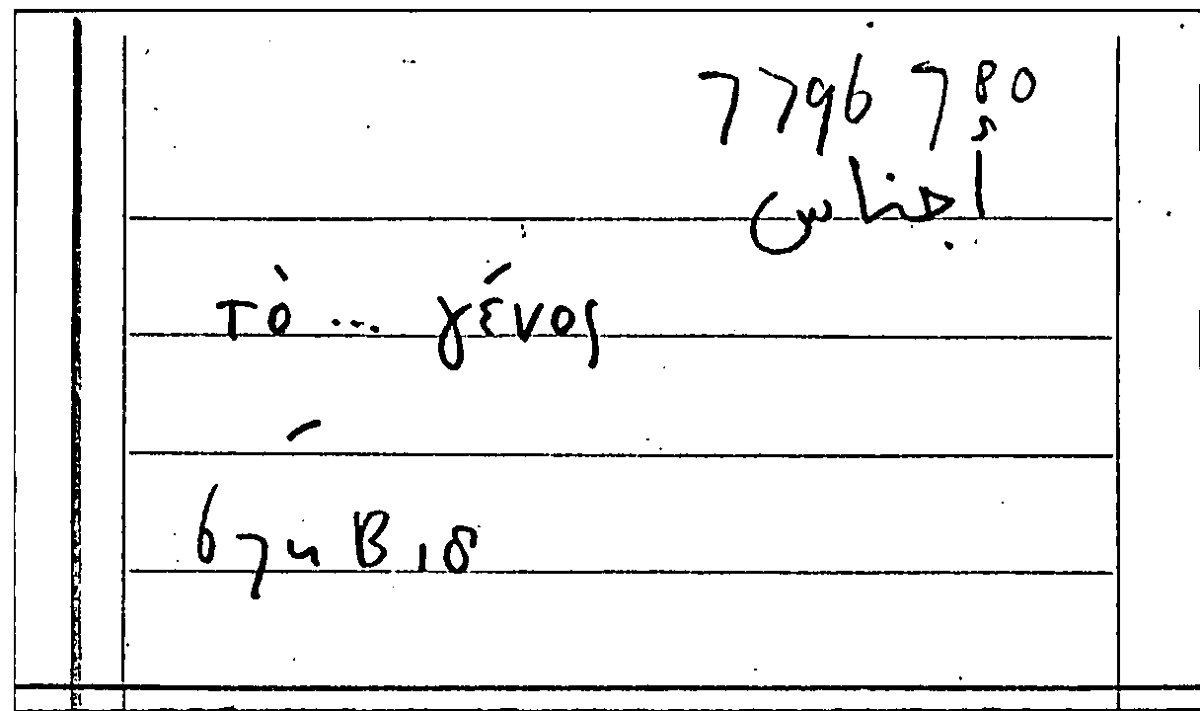 7796 780
أجناس
τὸ ... γένος
67u B 18